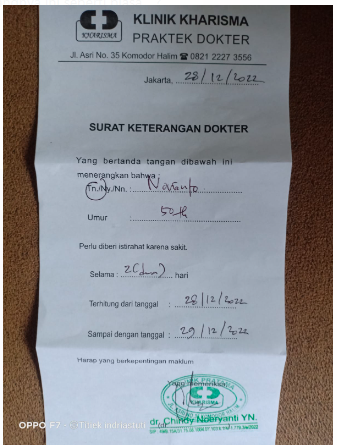 KLINIK KHARISMA
KHARISMA
PRAKTEK DOKTER
Jl. Asri No. 35 Komodor Halim ☎ 0821 2227 3556
Jakarta, 28/12/2022
SURAT KETERANGAN DOKTER
Yang bertanda tangan dibawah ini
menerangkan bahwa :
Tn./Ny./Nn. :
Umur : 50 th
Perlu diberi istirahat karena sakit.
Selama : 2 (dua) hari
Terhitung dari tanggal : 28/12/2022
Sampai dengan tanggal : 29/12/2022
Harap yang berkepentingan maklum
Yang memeriksa
KHARISMA
dr. Chindy Noeryanti YN.
OPPO F7